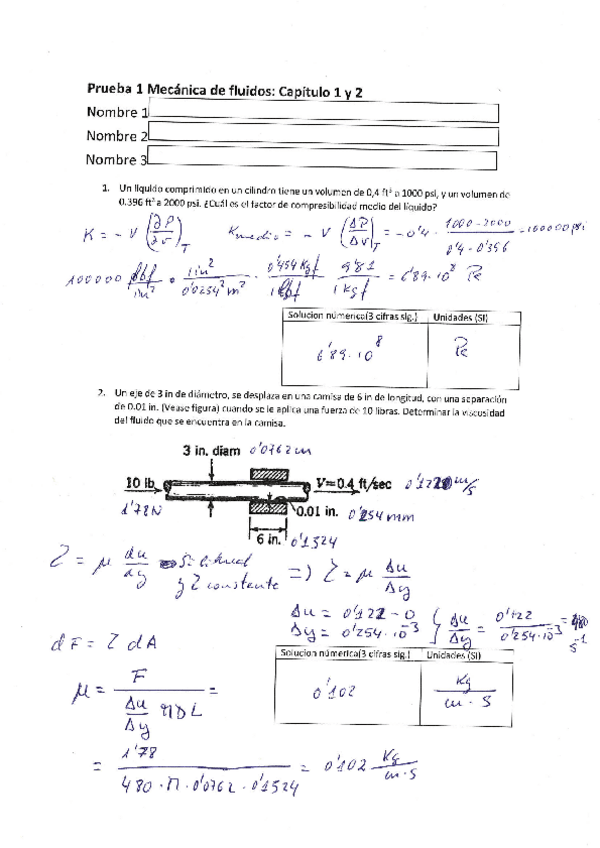 Prueba 1 Mecánica de fluidos: Capítulo 1 y 2
Nombre 1
Nombre 2
Nombre 3
1. Un liquido comprimido en un cilindro tiene un volumen de 0,4 ft³ a 1000 psi, y un volumen de
0.396 ft³ a 2000 psi. ¿Cuál es el factor de compresibilidad medio del líquido?
K = - V (∂P/∂V)T K medio = - V (ΔP/ΔV)T = - 0'4 · (1000-2000)/(0'4-0'396) = 100000 psi
100000 lbf/in² · 1in²/0'0254² m² · 0'454 Kgf/1 lbf · 9'81/1 Kgf = 6'89·10⁸ Pa
Solucion númerica(3 cifras sig.) Unidades (SI)
6'89·10⁸ Pa
2. Un eje de 3 in de diámetro, se desplaza en una camisa de 6 in de longitud, con una separación
de 0.01 in. (Vease figura) cuando se le aplica una fuerza de 10 libras. Determinar la viscosidad
del fluido que se encuentra en la camisa.
3 in. diam 0'0762 m
10 lb V=0.4 ft/sec m/s
1'78N 0.01 in. 0'254 mm
6 in. 0'1524
τ = μ du/dy Si lineal y τ constante => τ = μ Δu/Δy
Δu = 0'122 - 0
Δy = 0'254·10⁻³ } Δu/Δy = 0'122/0'254·10⁻³ = 480 s⁻¹
dF = τ dA
Solucion númerica(3 cifras sig.) Unidades (SI)
0'102 Kg/m·s
μ = F/(Δu/Δy πDL) =
= 1'78/(480·π·0'0762·0'1524) = 0'102 Kg/m·s